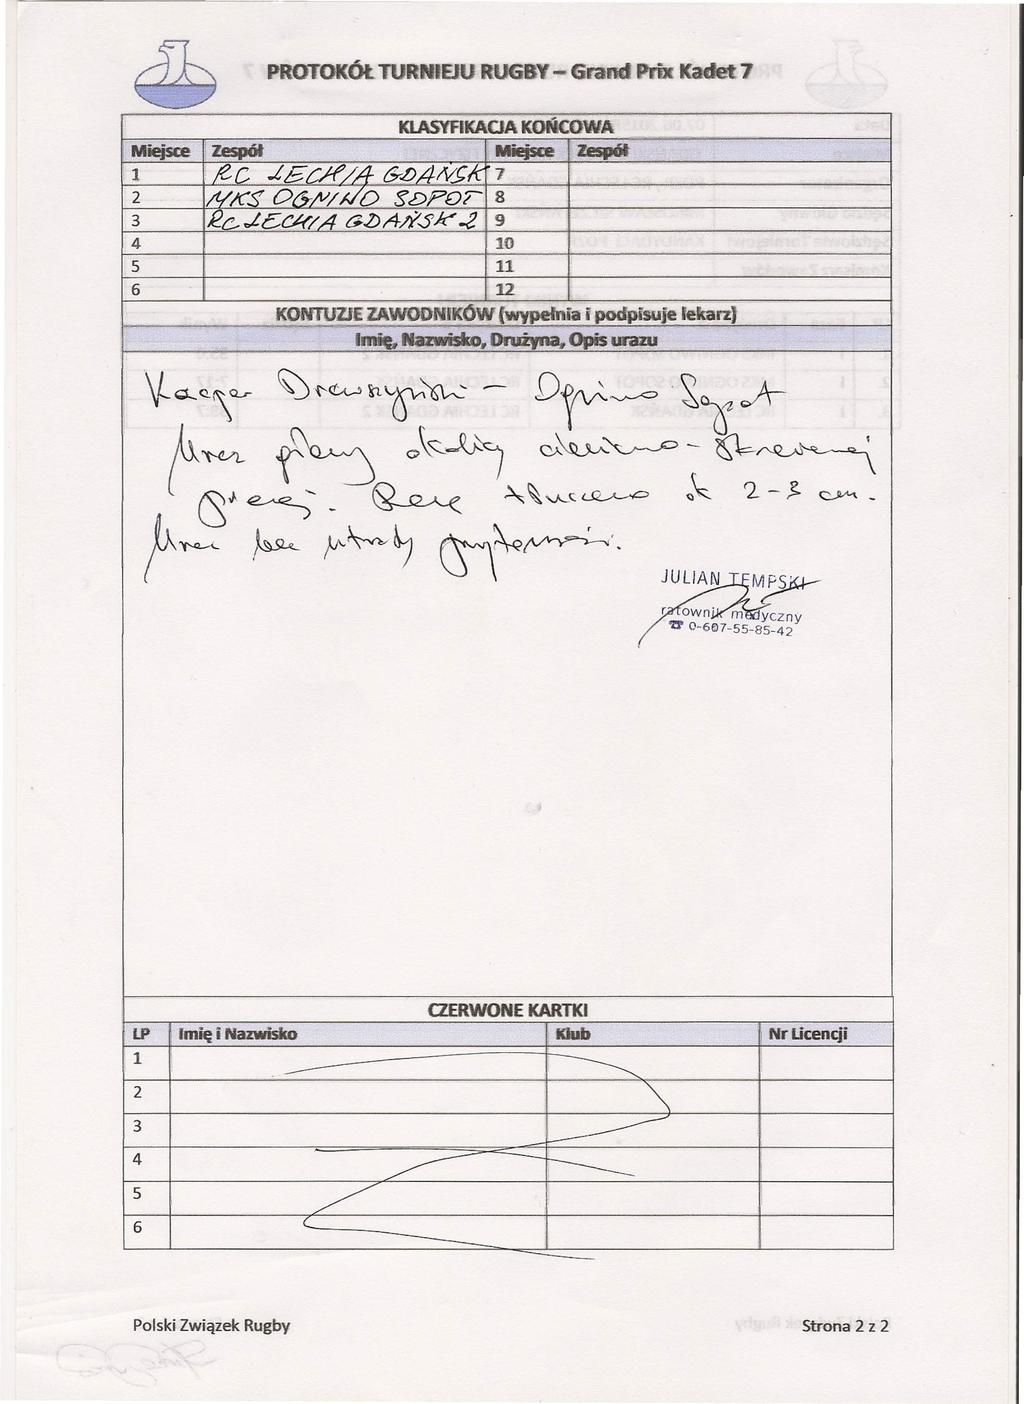 PROTOKÓŁ TURNIEJU RUGBY – Grand Prix Kadet 7
KLASYFIKACJA KOŃCOWA
Miejsce Zespół Miejsce Zespół
1 RC LECHIA GDAŃSK 7
2 MKS OGNIWO SOPOT 8
3 RC LECHIA GDAŃSK 2 9
4 10
5 11
6 12
KONTUZJE ZAWODNIKÓW (wypełnia i podpisuje lekarz)
Imię, Nazwisko, Drużyna, Opis urazu
Kacper Ogniwo Sopot
Uraz głowy okolicy ciemieniowo-skroniowej
prawej. Rana tłuczona ok 2-3 cm.
Uraz bez utraty przytomności.
JULIAN TEMPSKI
ratownik medyczny
☎ 0-607-55-85-42
CZERWONE KARTKI
LP Imię i Nazwisko Klub Nr Licencji
1
2
3
4
5
6
Polski Związek Rugby Strona 2 z 2